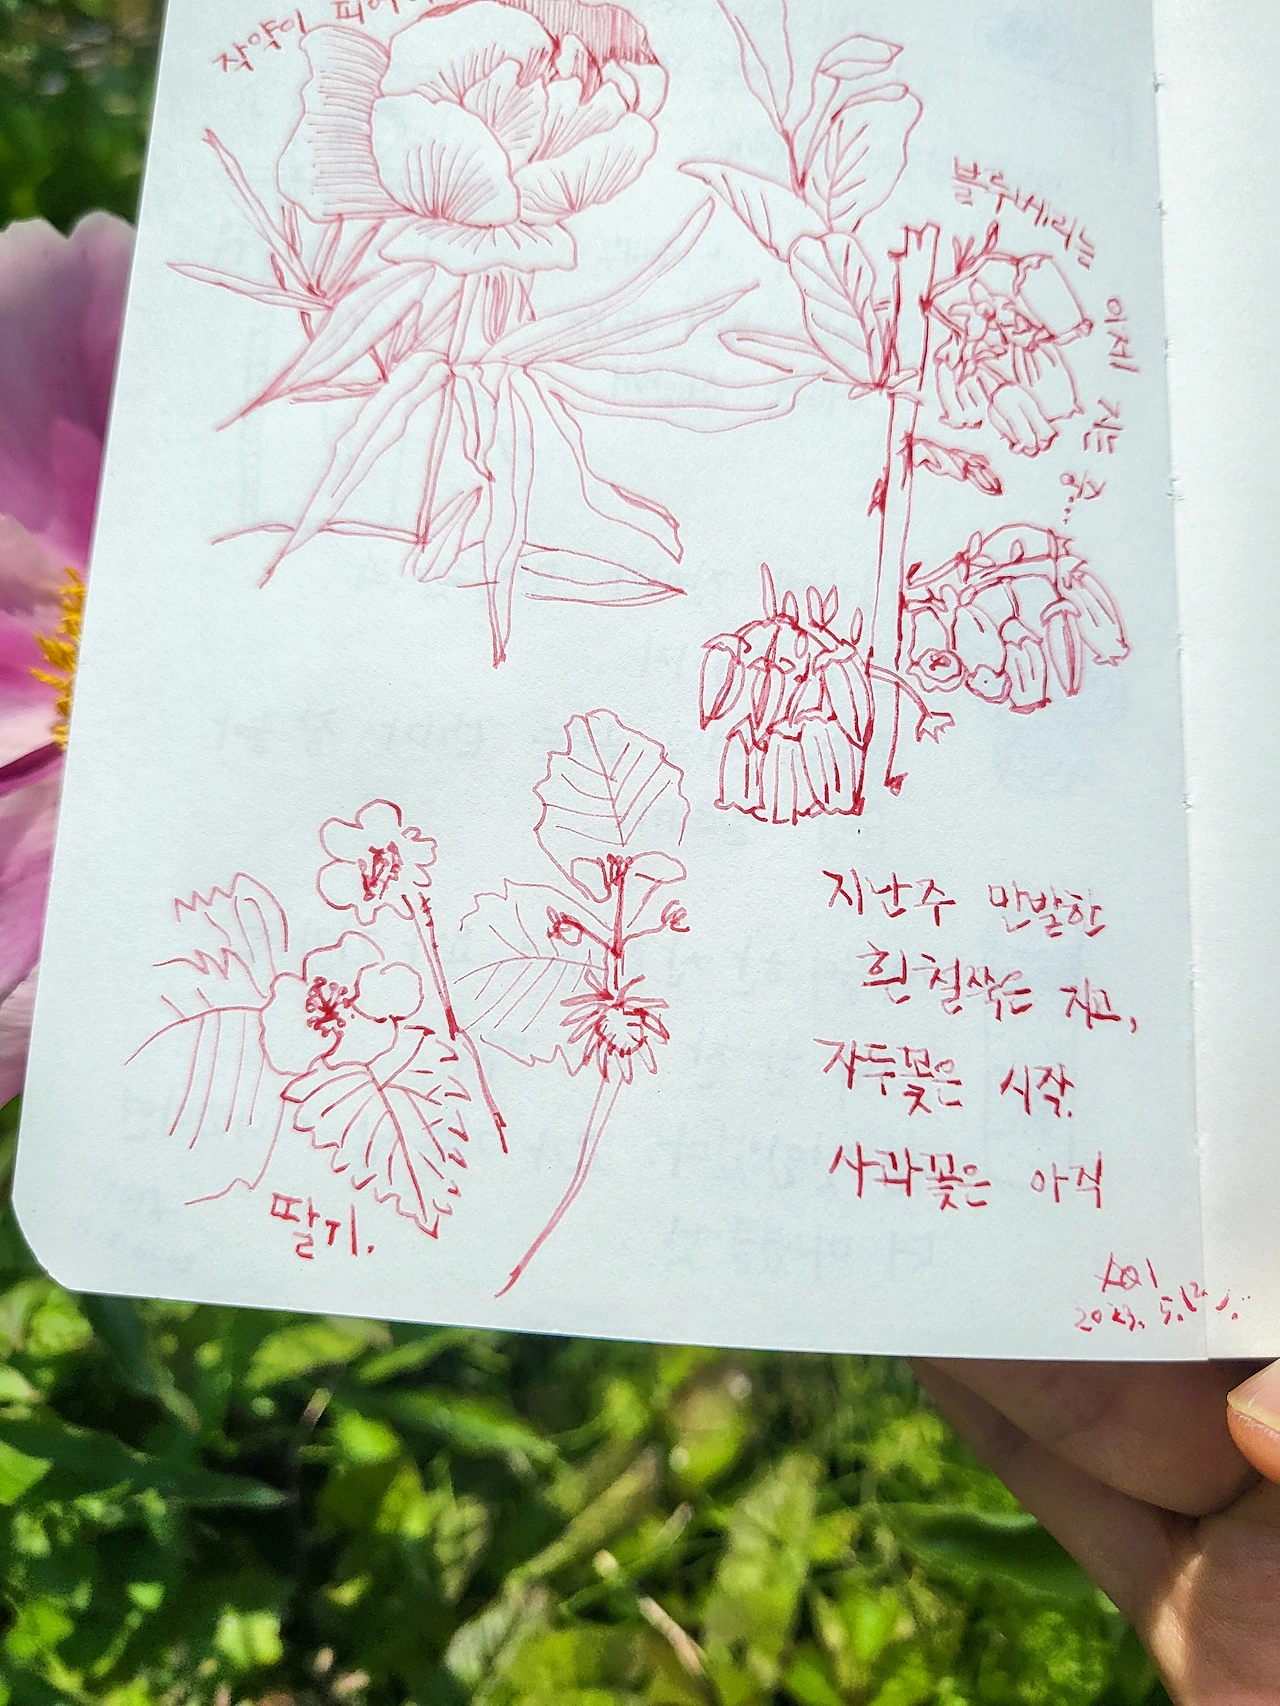 작약이
블루베리는
이제 지는 중...
지난주 만발한
흰 철쭉은 지고,
자두꽃은 시작.
사과꽃은 아직
딸기.
2023. 5.